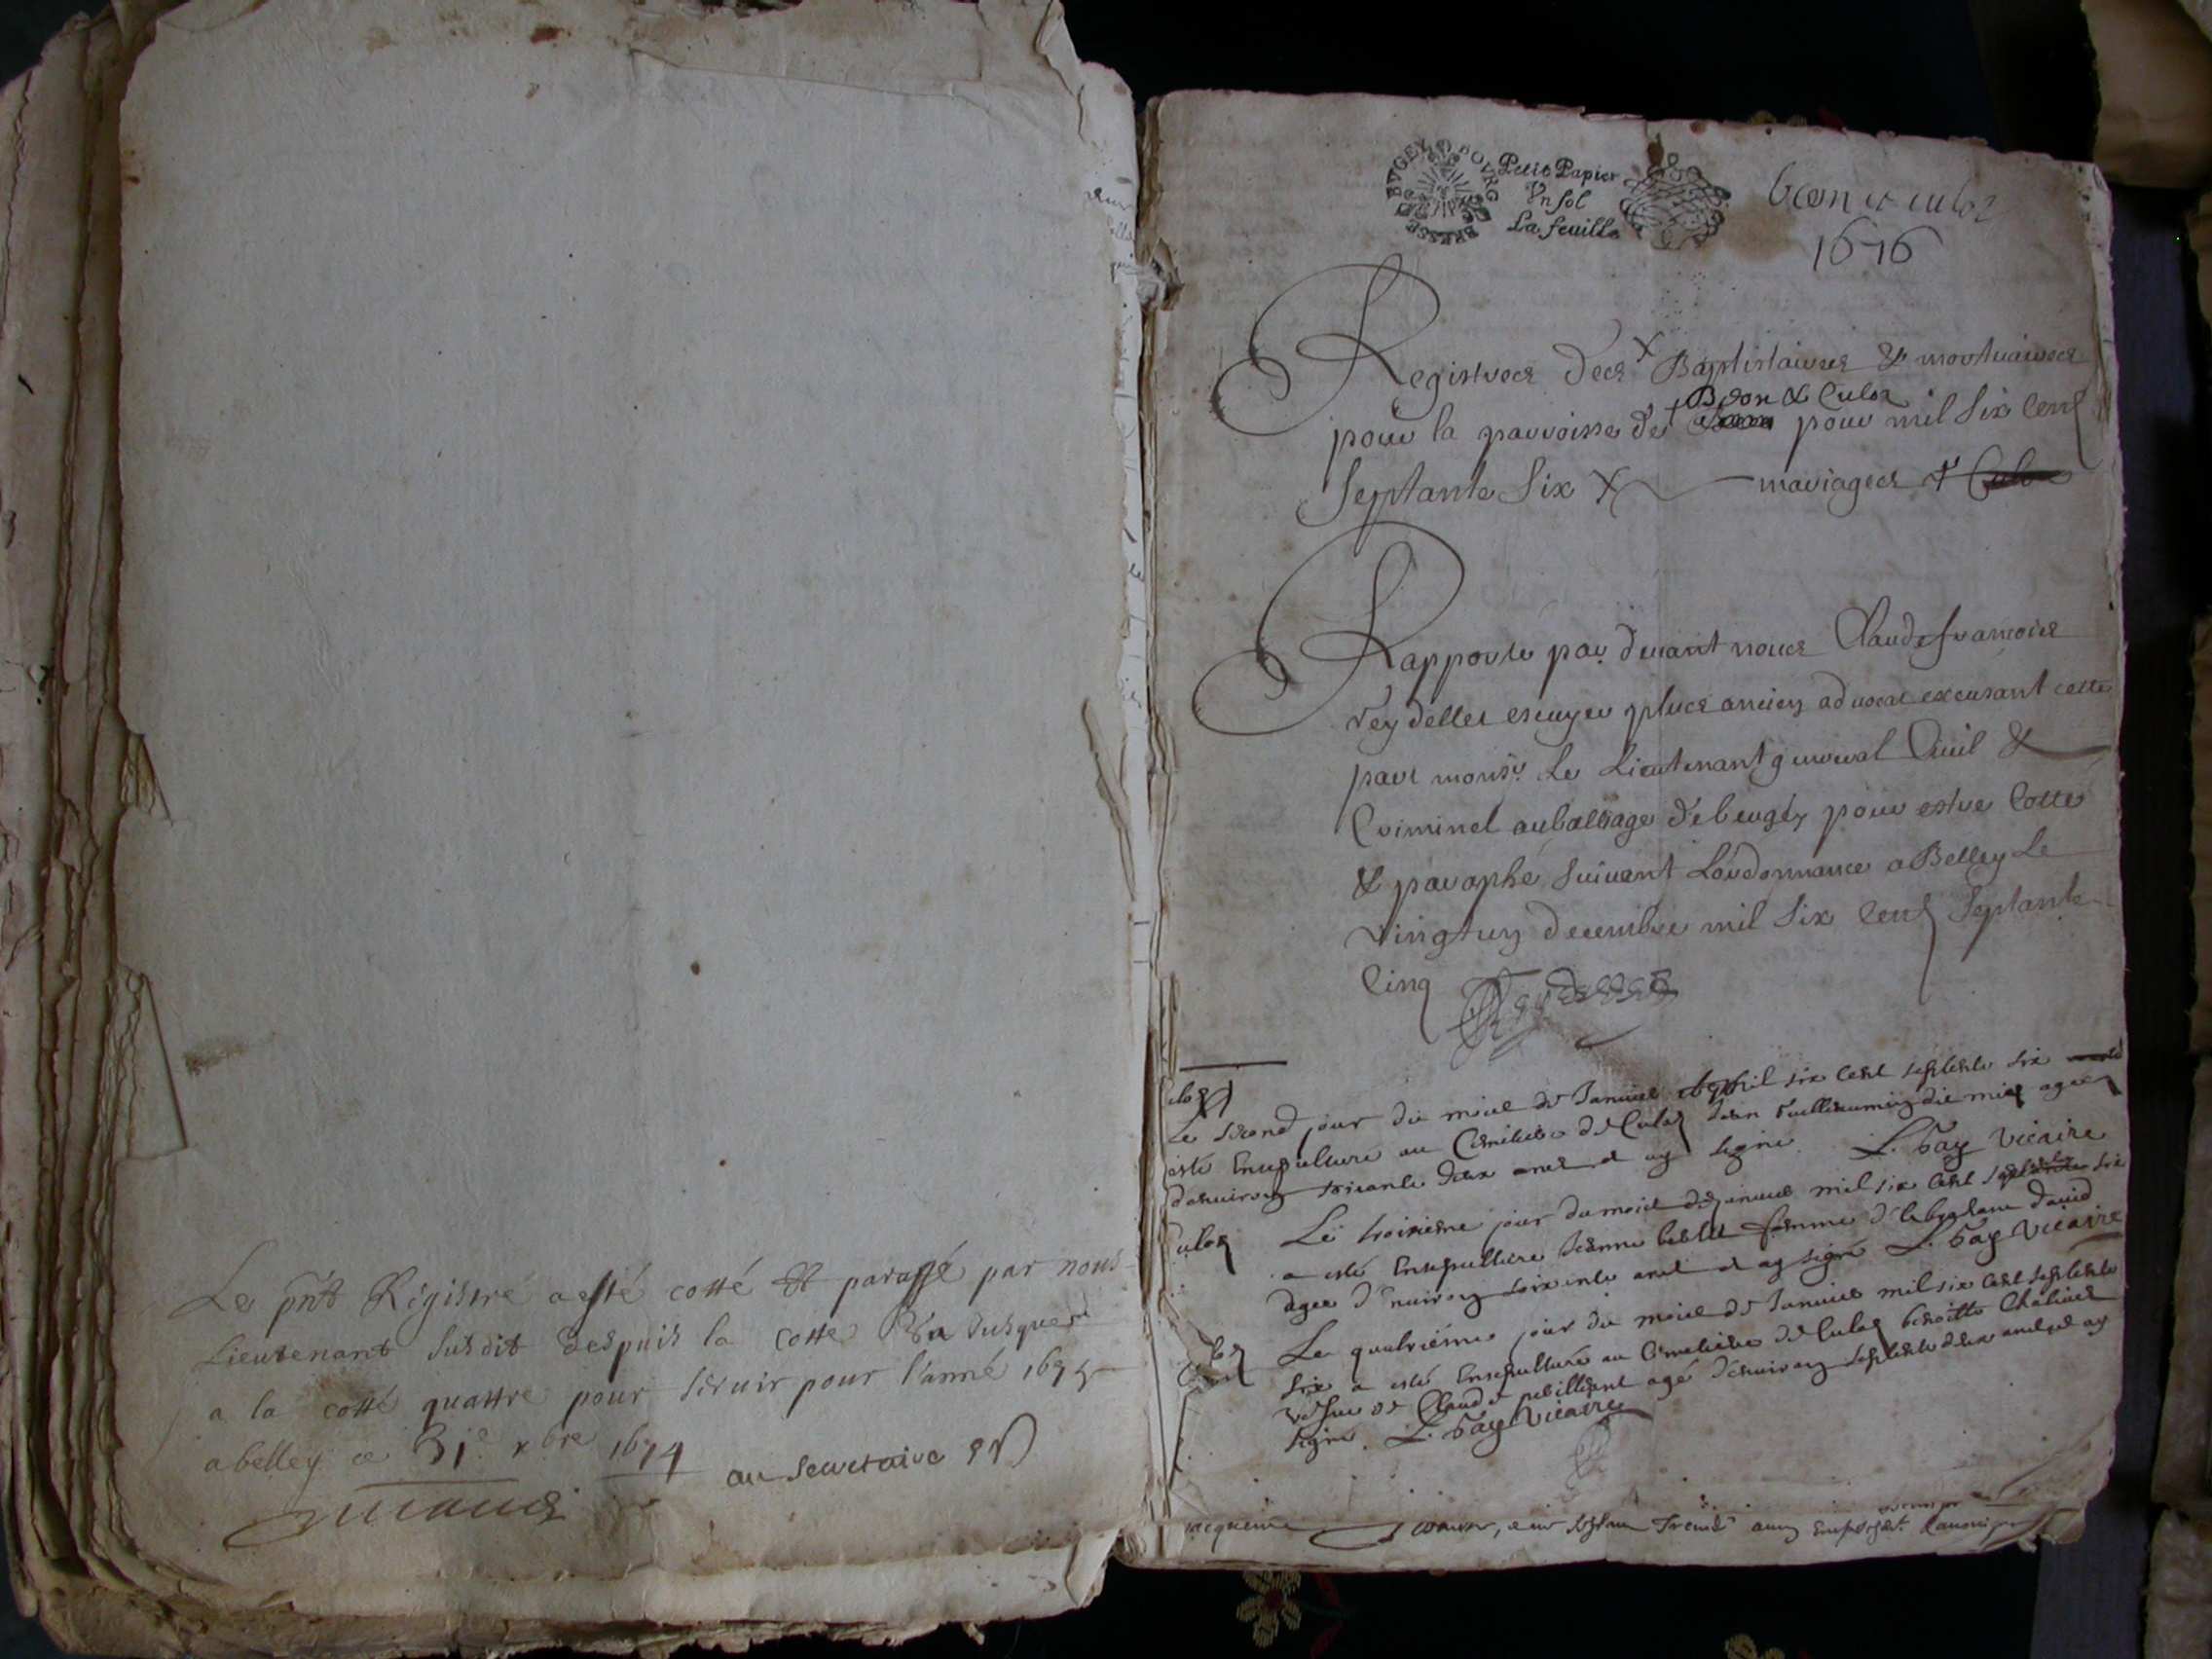 Le pñt Régistré a esté cotté & paraffé par nous
Lieutenant susdit despuis la cotte Va Jusques
a la cotté quattre pour seruir pour l'anné 1675
a belley ce 31e xbre 1674
au secretaire
BVGEY BOVRG BRESSE
Petit Papier
Vn sol
La feuille
beon et culoz
1676
Registres des X Baptistaires & mortuaires
Beon & Culoz
pour la parroisse de pour mil six cent
septante six X mariages
Rapporté par deuant nous Claude françois
Veydellet escuyer plus ancien aduocat excusant cette
part monsr. Le Lieutenant general Ciuil &
Criminel au balliage de beugey pour estre Cotté
& paraphé suiuant Lordonnance a Belley Le
Vingt un decembre mil six cent septante
Cinq
Le second jour du mois de Januier mil six cent septente six
esté Ensepulturé au Cemetiere de Culoz Jean agé
denuiron soixante deux ans et ay signé. L. Bay Vicaire
Culoz Le troisieme jour du mois de januier mil six cent septente six
a esté Ensepulturee Jeanne femme d dauid
agee d'enuiron soixente ans et ay signé L. Bay Vicaire
Le quatriéme jour du mois de Januier mil six cent septente
six a esté Ensepulturé au Cemetiere de Culoz benoitte
vefue de Claude agé d'enuiron septente deux ans et ay
signé. L. Bay Vicaire